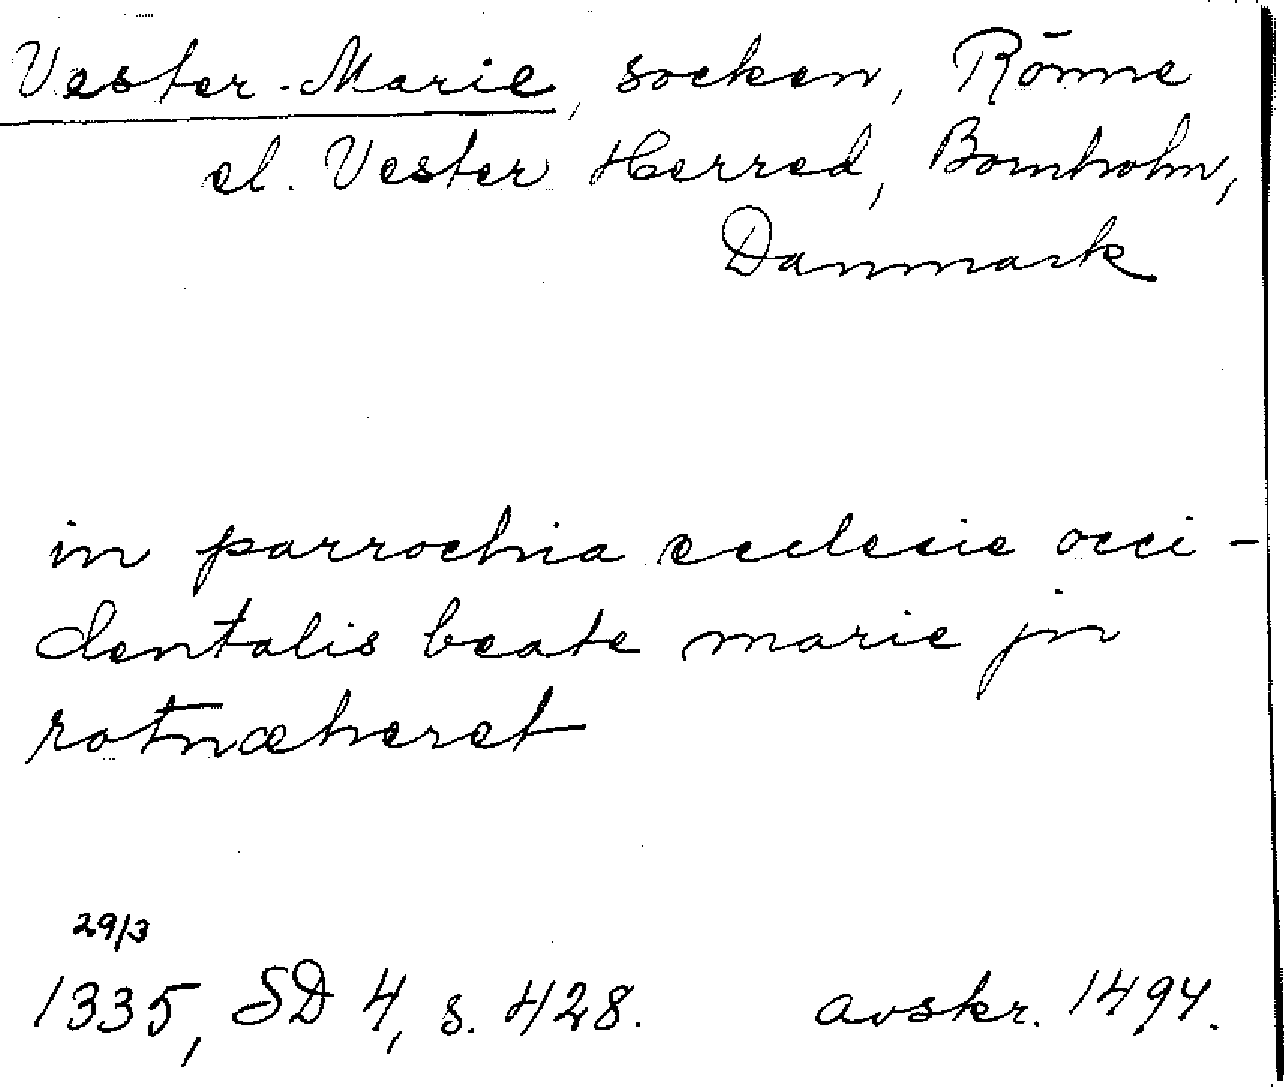 Vester-Marie, socken, Rönne
el. Vester Herred, Bornholm,
Danmark
in parrochia ecclesie occi-
dentalis beate marie jn
rotnæheret
29/3
1335, SD 4, s. 428. avskr. 1494.